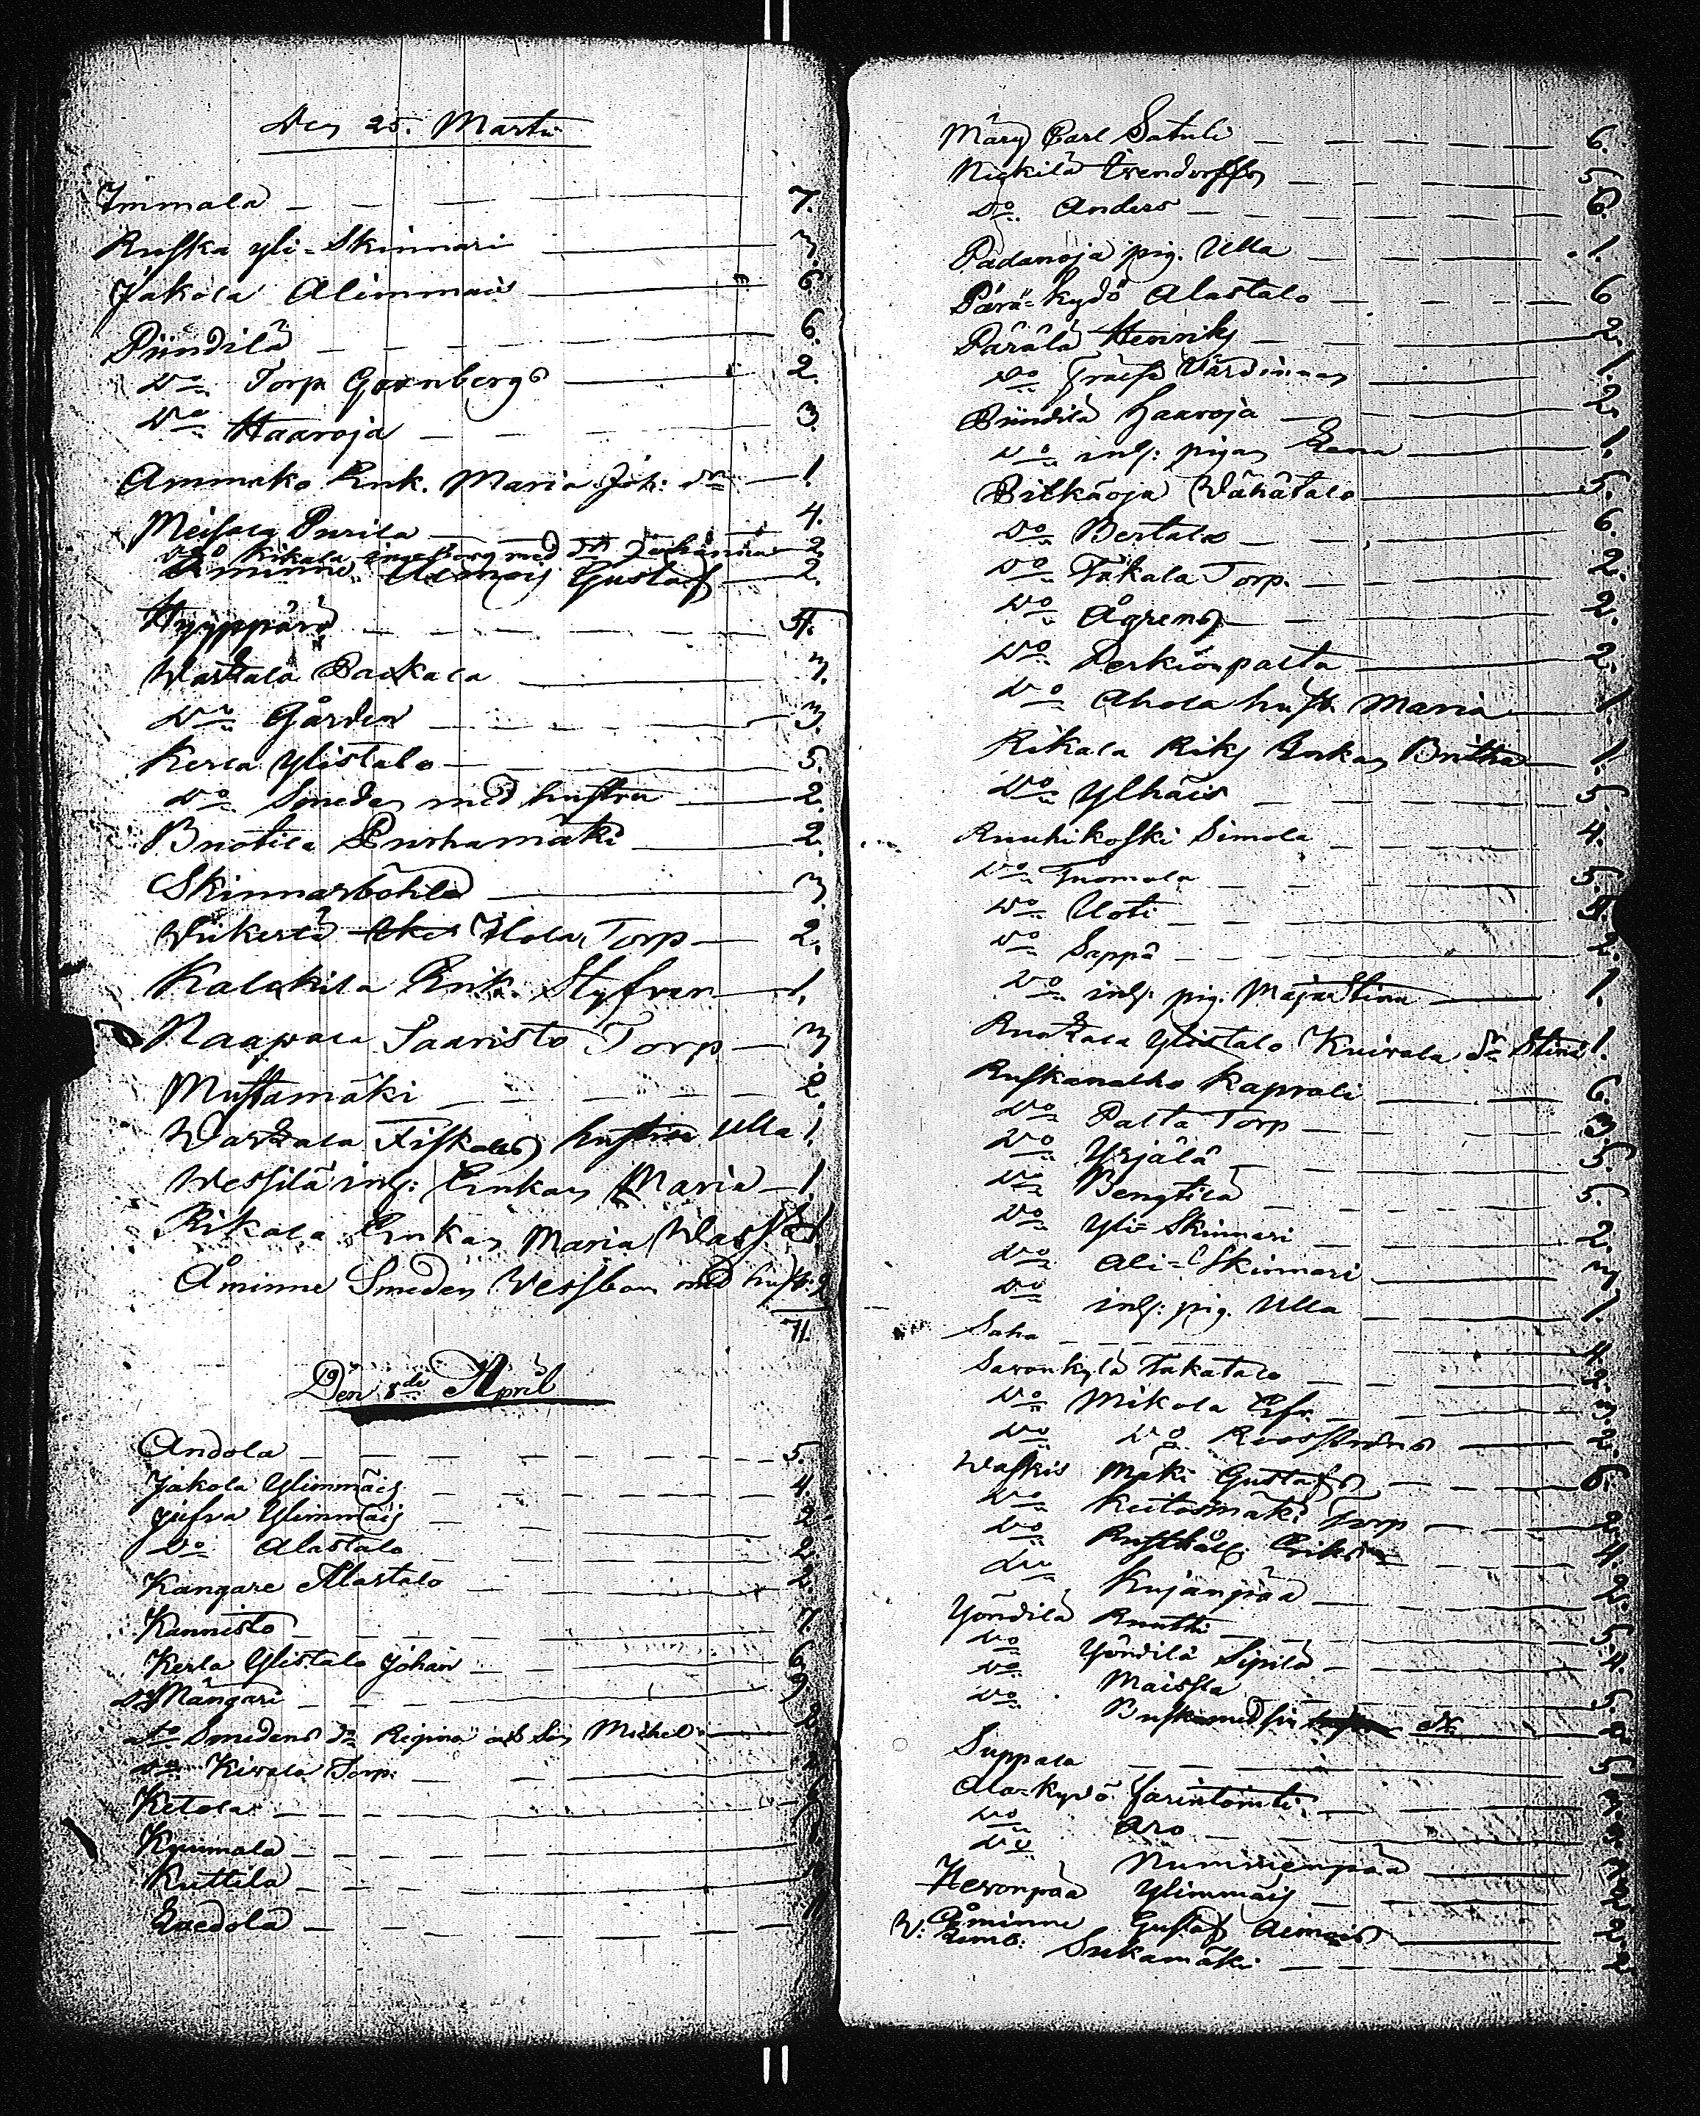 Den 25. Martii
Immala — 7.
Ruska yli-Skinnari — 3.
Jakola Alimmais — 6
Pündilä — 6.
Do Torp Grönbergs — 2.
Do Haaroja — 3
Ammako Enk. Maria Joh: dr — 1.
Meisala Purila — 4.
Do Rikala Ingeborg med dr Johanna — 2
Åminne Gustaf — 2.
Hyyppärä — 4.
Wartsala Backala — 3.
Do Gården — 3.
Kerla Ylistalo — 5.
Do Smeden med hustru — 2.
Buotila Purhamäki — 2.
Skinnarböhle — 3.
Wiikerlä Ilola Torp — 2.
Kalakila Enk. Styfver — 1.
Naapala Saaristo Torp — 3
Mustamäki — 2.
Wartsala Fiskales hustru Ulla 1.
Wessilä inh: Enkan Maria — 1
Rikala Enkan Maria 1.
Åminne Smeden Wessbom med hust. 2
71.
Den 8de April
Andola — 5.
Jakola Ylimmäis — 4.
Jufva Ylimmäis — 2
Do Alastalo — 2.
Kangare Alastalo — 2.
Kannisto — 7.
Kerla Ylistalo Johan — 6
Do Mängäri — 9.
Do Smedens dr Regina och Son Michel — 2
Do Kivala Torp.
Ketola —
Kyumala —
Kuttila —
Luedola —
Märy Carl Satuli — 6.
Nickilä — 5
Do Anders — 6.
Padanoja pig. Ulla — 1.
Perä-kydö Alastalo — 6
Pärälä Henriks — 2.
Do Värdinnan — 1.
Pündilä Haaroja — 2.
Do inh: pigan Lena — 1.
Pitkäoja Wähätalo — 5.
Do Bertala — 6.
Do Takala Torp. — 2.
Do Ågrens — 2.
Do Perkiönpalta — 2.
Do Ahola hust. Maria — 1
Rikala Riks Enkan Britha — 1.
Do Ylhäis — 5.
Ruuhikoski Simola — 4.
Do Tuomola — 5.
Do Uoti — 4.
Do Seppä — 2.
Do inh: pig. Maja Stina — 1.
Ruotsala Ylistalo Knivala dr Stina 1.
Ruskanatko Kaprali — 6.
Do Palta Torp — 3.
Do Yrjälä — 5.
Do Bengtilä — 5.
Do Yli-Skinnari — 2.
Do Ali-Skinnari — 3
Do inh: pig. Ulla — 1.
Saha — 4.
Savonkylä Takatalo — 2.
Do Mikola — 3.
Do Do Roosströms — 2.
Waskis Mäki Gustafs — 6.
Do Keitosmäki Torp — 2.
Do Rusthåll: Eriks — 4.
Do Kujanpää — 2.
Yöndilä Ruutti — 5.
Do Yöndilä Sipilä — 4.
Do Maissla
Do — 5.
Suppala — 5
Ala-kydö
Do Aro
Do Nummenpää
Hevonpää Ylimmäis — 2
Åminne Gustaf — 2.
W: Remb: Sukamäki — 2